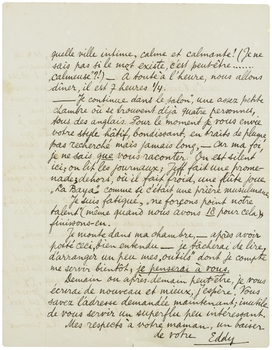 quelle ville intime, calme et calmante! (Je ne
sais pas si le mot existe, c'est peut-être.......
calmeuse"?) — A toute à l'heure, nous allons
dîner, il est 7 heures 1/4.
— Je continue dans le salon", une assez petite
chambre où se trouvent déjà quatre personnes,
tous des anglais. Pour le moment je vous envie
votre style hâtif, bondissant, en traits de plume
pas recherché mais jamais long, — car ma foi,
je ne sais que vous raconter. On est silent
ici, on lit les journaux; Jeff fait une prome-
nade dehors, où il fait froid, une flûte joue
"La Baya" comme si c'était une prière musulmane
Je suis fatigué, "ne forçons point notre
talent", même quand nous avons 18 pour cela;
finissons-en.
Je monte dans ma chambre, — après avoir
posté ceci, bien entendu — je tâcherai de lire,
d'arranger un peu mes "outils" dont je compte
me servir bientôt, je penserai à vous.
Demain ou après-demain peut-être, je vous
écrirai de nouveau et mieux, j'espère. Vous
savez l'adresse demandée maintenant; inutile
de vous servir un superflu peu intéressant.
Mes respects à votre maman, un baiser
de votre Eddy